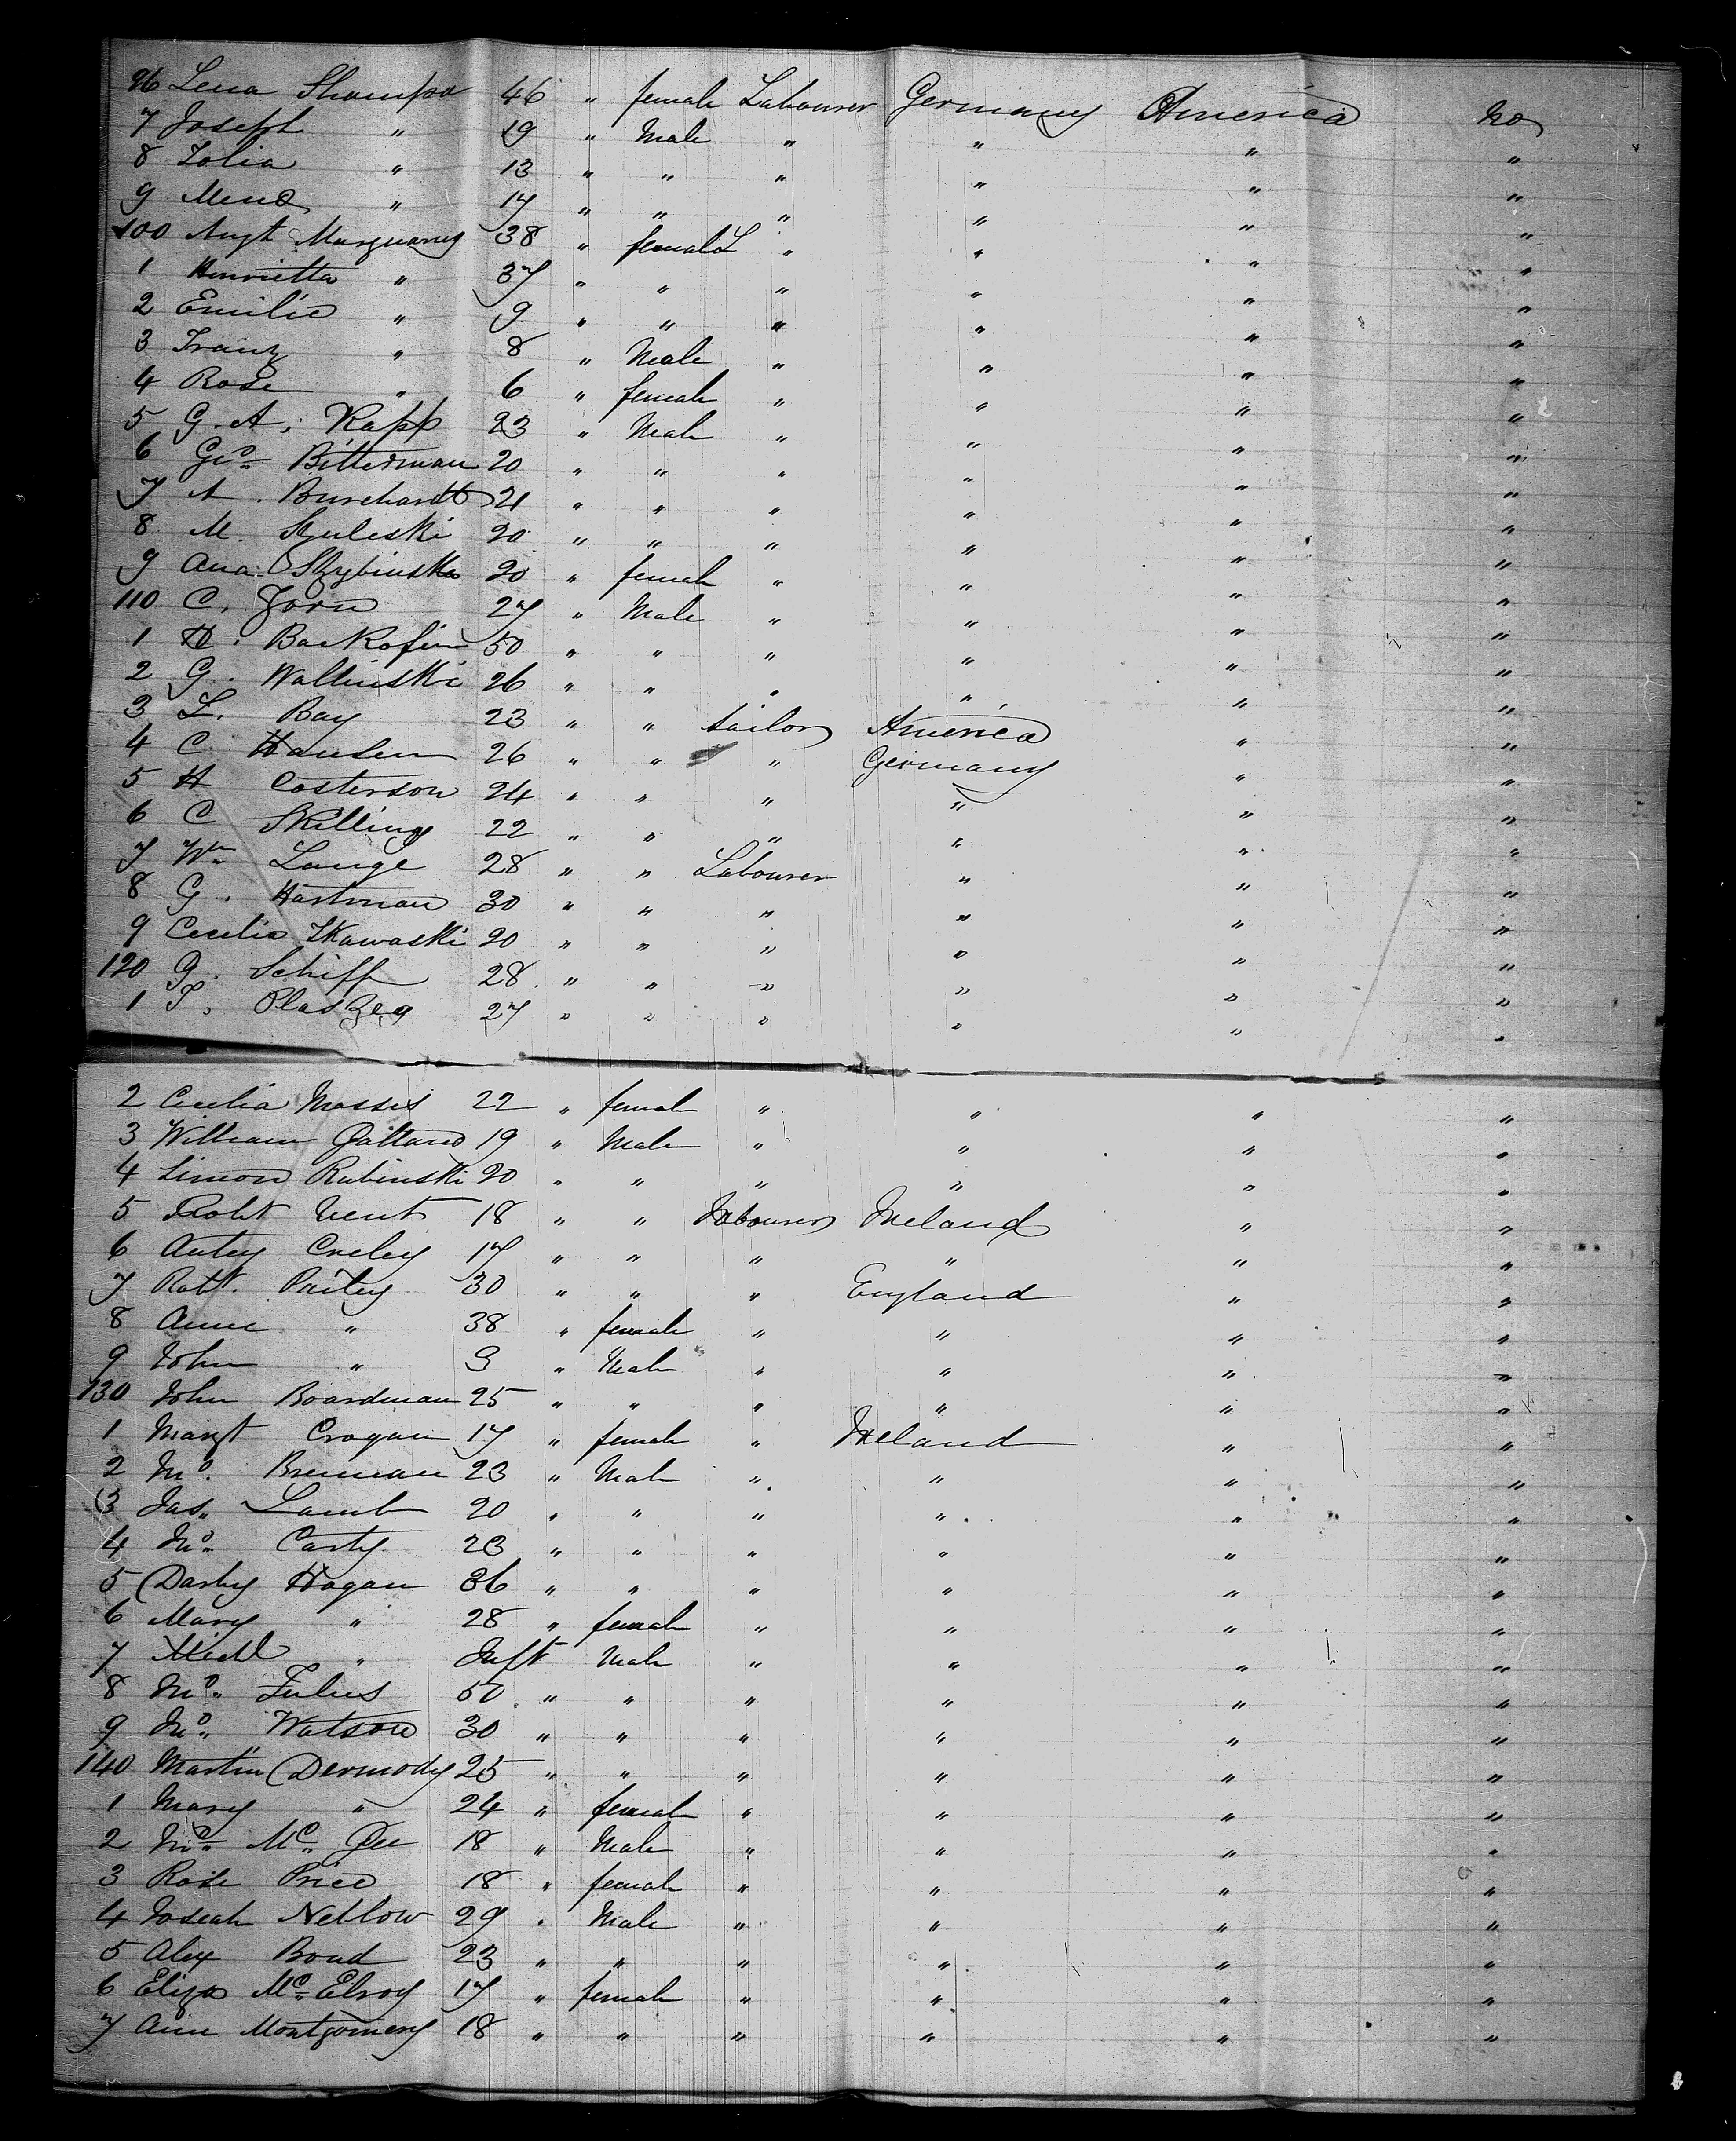 96 Lena Shampa 46 " female Labourer Germany America no
7 Joseph " 19 " Male " " " "
8 Tolia " 13 " " " " " "
9 " 17 " " " " " "
100 Augt 38 " female " " " "
1 Henrietta " 37 " " " " " "
2 Emilie " 9 " " " " " "
3 Franz " 8 " Male " " " "
4 Rose " 6 " female " " " "
5 G. A. Rapp 23 " Male " " " "
6 Geo Bitterman 20 " " " " " "
7 A. Burchardt 21 " " " " " "
8 M. 20 " " " " " "
9 Ana Skybinska 20 " female " " " "
110 C. Jorn 27 " Male " " " "
1 H. Backofin 50 " " " " " "
2 G. Wallinski 26 " " " " " "
3 L. Bay 23 " " Sailor America " "
4 C Hansen 26 " " " Germany " "
5 H Costerson 24 " " " " " "
6 C Skilling 22 " " " " " "
7 Wm Lange 28 " " Labourer " " "
8 G. Hartman 30 " " " " " "
9 Cecilia Skawaski 20 " " " " " "
120 G. Schiff 28 " " " " " "
1 27 " " " " " "
2 Cecilia Mosses 22 " female " " " "
3 William 19 " Male " " " "
4 Simon Rubinski 20 " " " " " "
5 Robt Vent 18 " " Labourer Ireland " "
6 Creley 17 " " " " " "
7 Robt. Paitey 30 " " " England " "
8 Anne " 38 " female " " " "
9 John " 3 " Male " " " "
130 John Boardman 25 " " " " " "
1 Margt Crogan 17 " female " Ireland " "
2 Jno. Brennan 23 " Male " " " "
3 Jas. Lamb 20 " " " " " "
4 Jno. Carty 23 " " " " " "
5 Darby Hogan 36 " " " " " "
6 Mary " 28 " female " " " "
7 Michl " Inft Male " " " "
8 Jno. 50 " " " " " "
9 Jno. Watson 30 " " " " " "
140 Martin Dermody 25 " " " " " "
1 Mary " 24 " female " " " "
2 Jno. Mc Gee 18 " Male " " " "
3 Rose Price 18 " female " " " "
4 Joseah Netlow 29 " Male " " " "
5 Alex Bond 23 " " " " " "
6 Eliza McElroy 17 " female " " " "
7 Ann Montgomery 18 " " " " " "